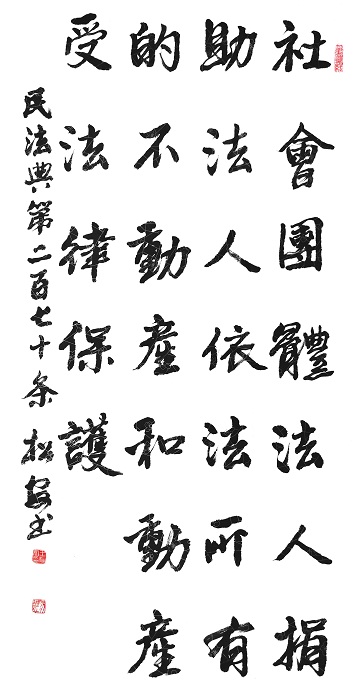 社會團體法人捐
助法人依法所有
的不動產和動產
受法律保護
民法典第二百七十条 松安书